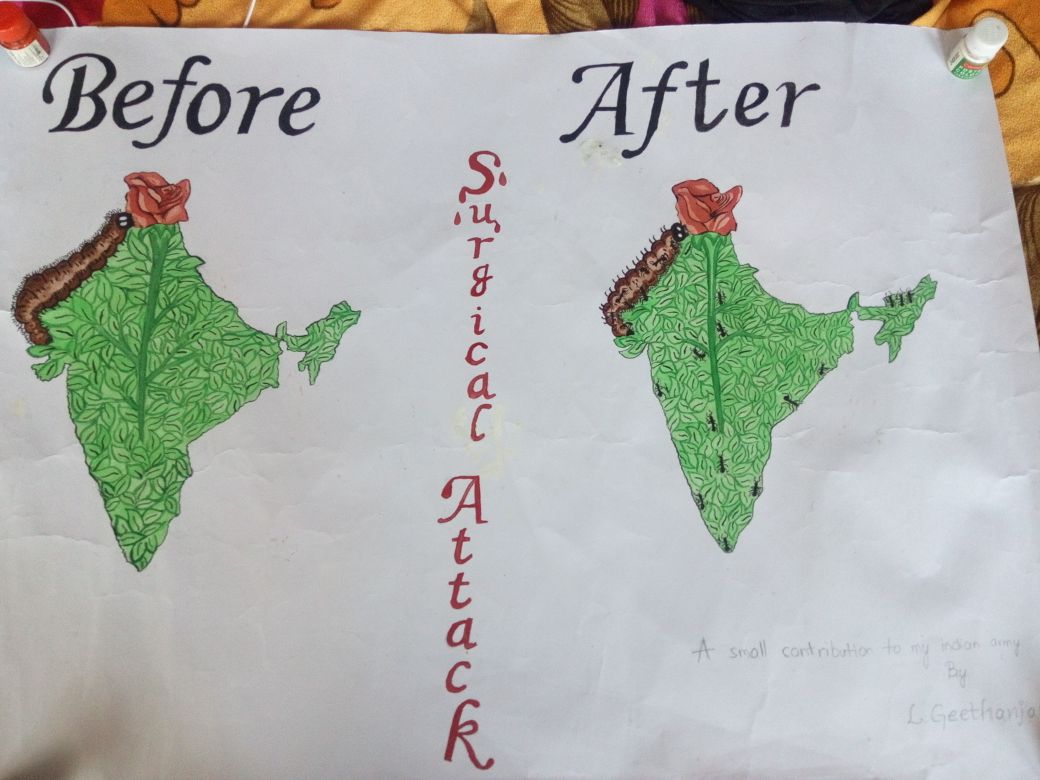 Before
After
Surgical
Attack
A small contribution to my indian army
By
L.Geethanja